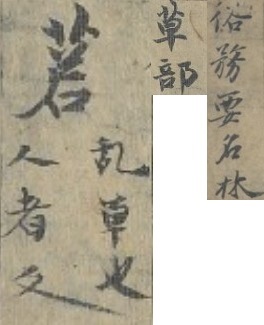 俗務要名林
草部
若
乱草也
人者反